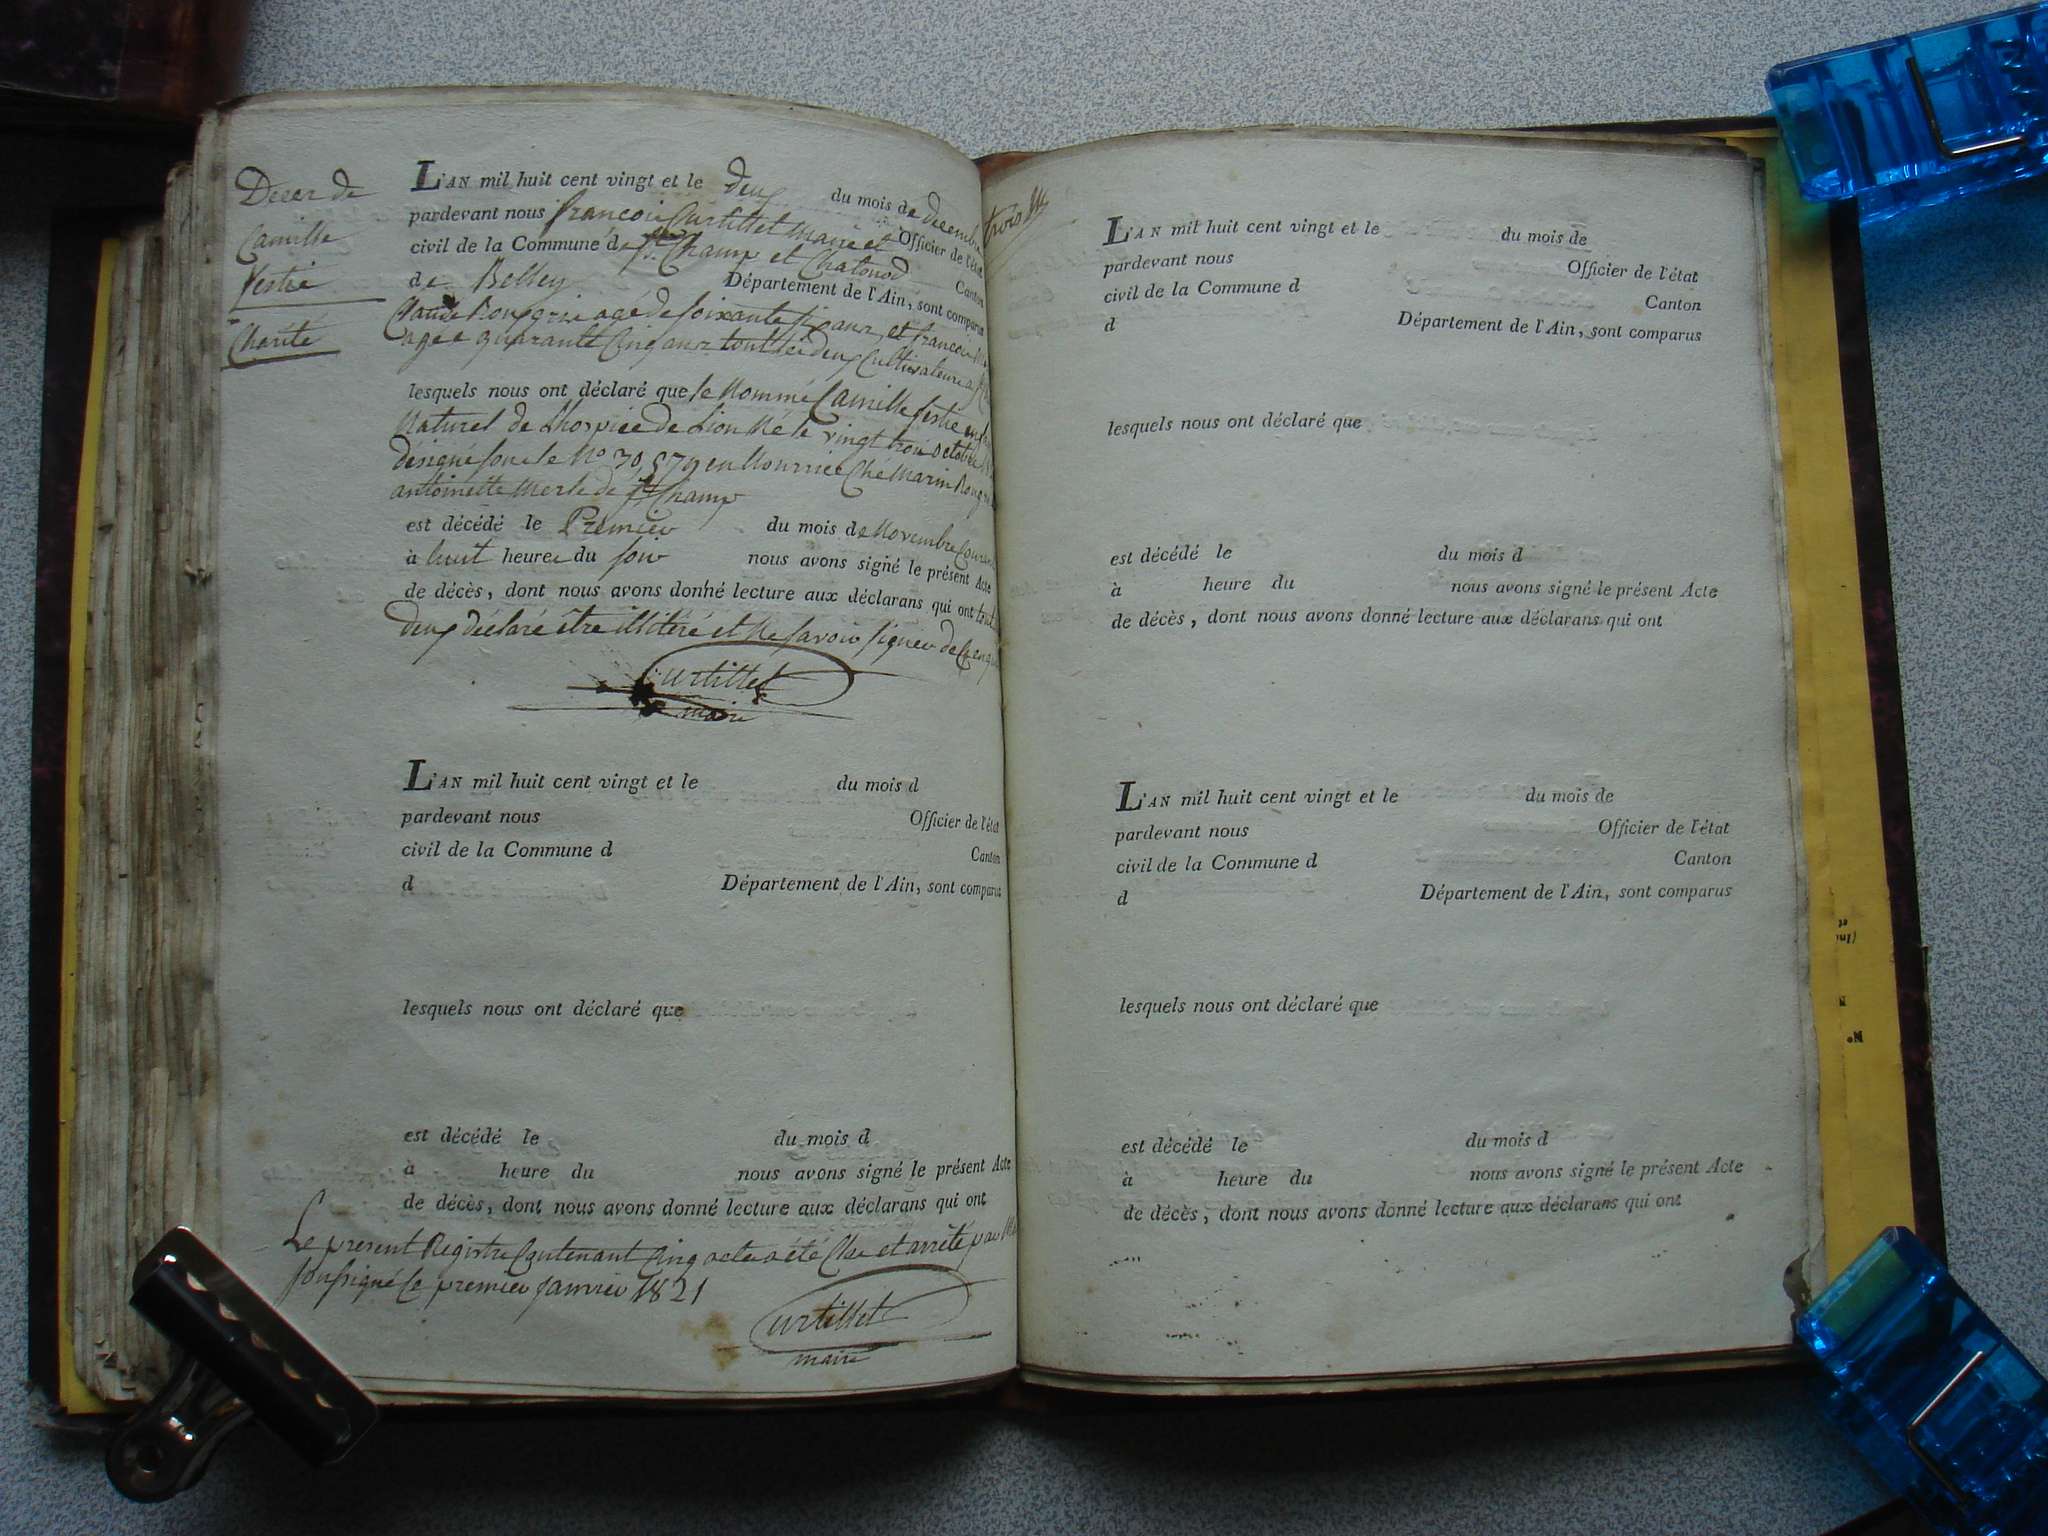 Deces de
Camille
Festie
Charité
L'AN mil huit cent vingt et le deux du mois de decembre
pardevant nous francois Curtillet Maire et Officier de l'état
civil de la Commune de St. Champ et Chatonod Canton
de Belley Département de l'Ain, sont comparus
Claude Rougrin agé de soixante six ans, et francois
agé e quarante Cinq ans toutt les deux Cultivateurs a
lesquels nous ont déclaré que le Nommé Camille festie
Naturel de Lhospice de Lion Né le vingt trois octobre
désigné sous le No en Nourrice Ché Marin
antoinette Merle de St Champ
est décédé le Premier du mois de Novembre Courant
à huit heures du soir nous avons signé le présent Acte
de décès, dont nous avons donné lecture aux déclarans qui ont tout
deux déclaré être illiteré et Ne savoir signer de
Curtillet
maire
L'AN mil huit cent vingt et le du mois d
pardevant nous Officier de l'état
civil de la Commune d Canton
d Département de l'Ain, sont comparus
lesquels nous ont déclaré que
est décédé le du mois d
à heure du nous avons signé le présent Acte
de décès, dont nous avons donné lecture aux déclarans qui ont
Le present Registre Contenant Cinq actes a été Clos et arrêté par
soussigné Le premier Janvier 1821
Curtillet
maire
trois
L'AN mil huit cent vingt et le du mois de
pardevant nous Officier de l'état
civil de la Commune d Canton
d Département de l'Ain, sont comparus
lesquels nous ont déclaré que
est décédé le du mois d
à heure du nous avons signé le présent Acte
de décès, dont nous avons donné lecture aux déclarans qui ont
L'AN mil huit cent vingt et le du mois de
pardevant nous Officier de l'état
civil de la Commune d Canton
d Département de l'Ain, sont comparus
lesquels nous ont déclaré que
est décédé le du mois d
à heure du nous avons signé le présent Acte
de décès, dont nous avons donné lecture aux déclarans qui ont